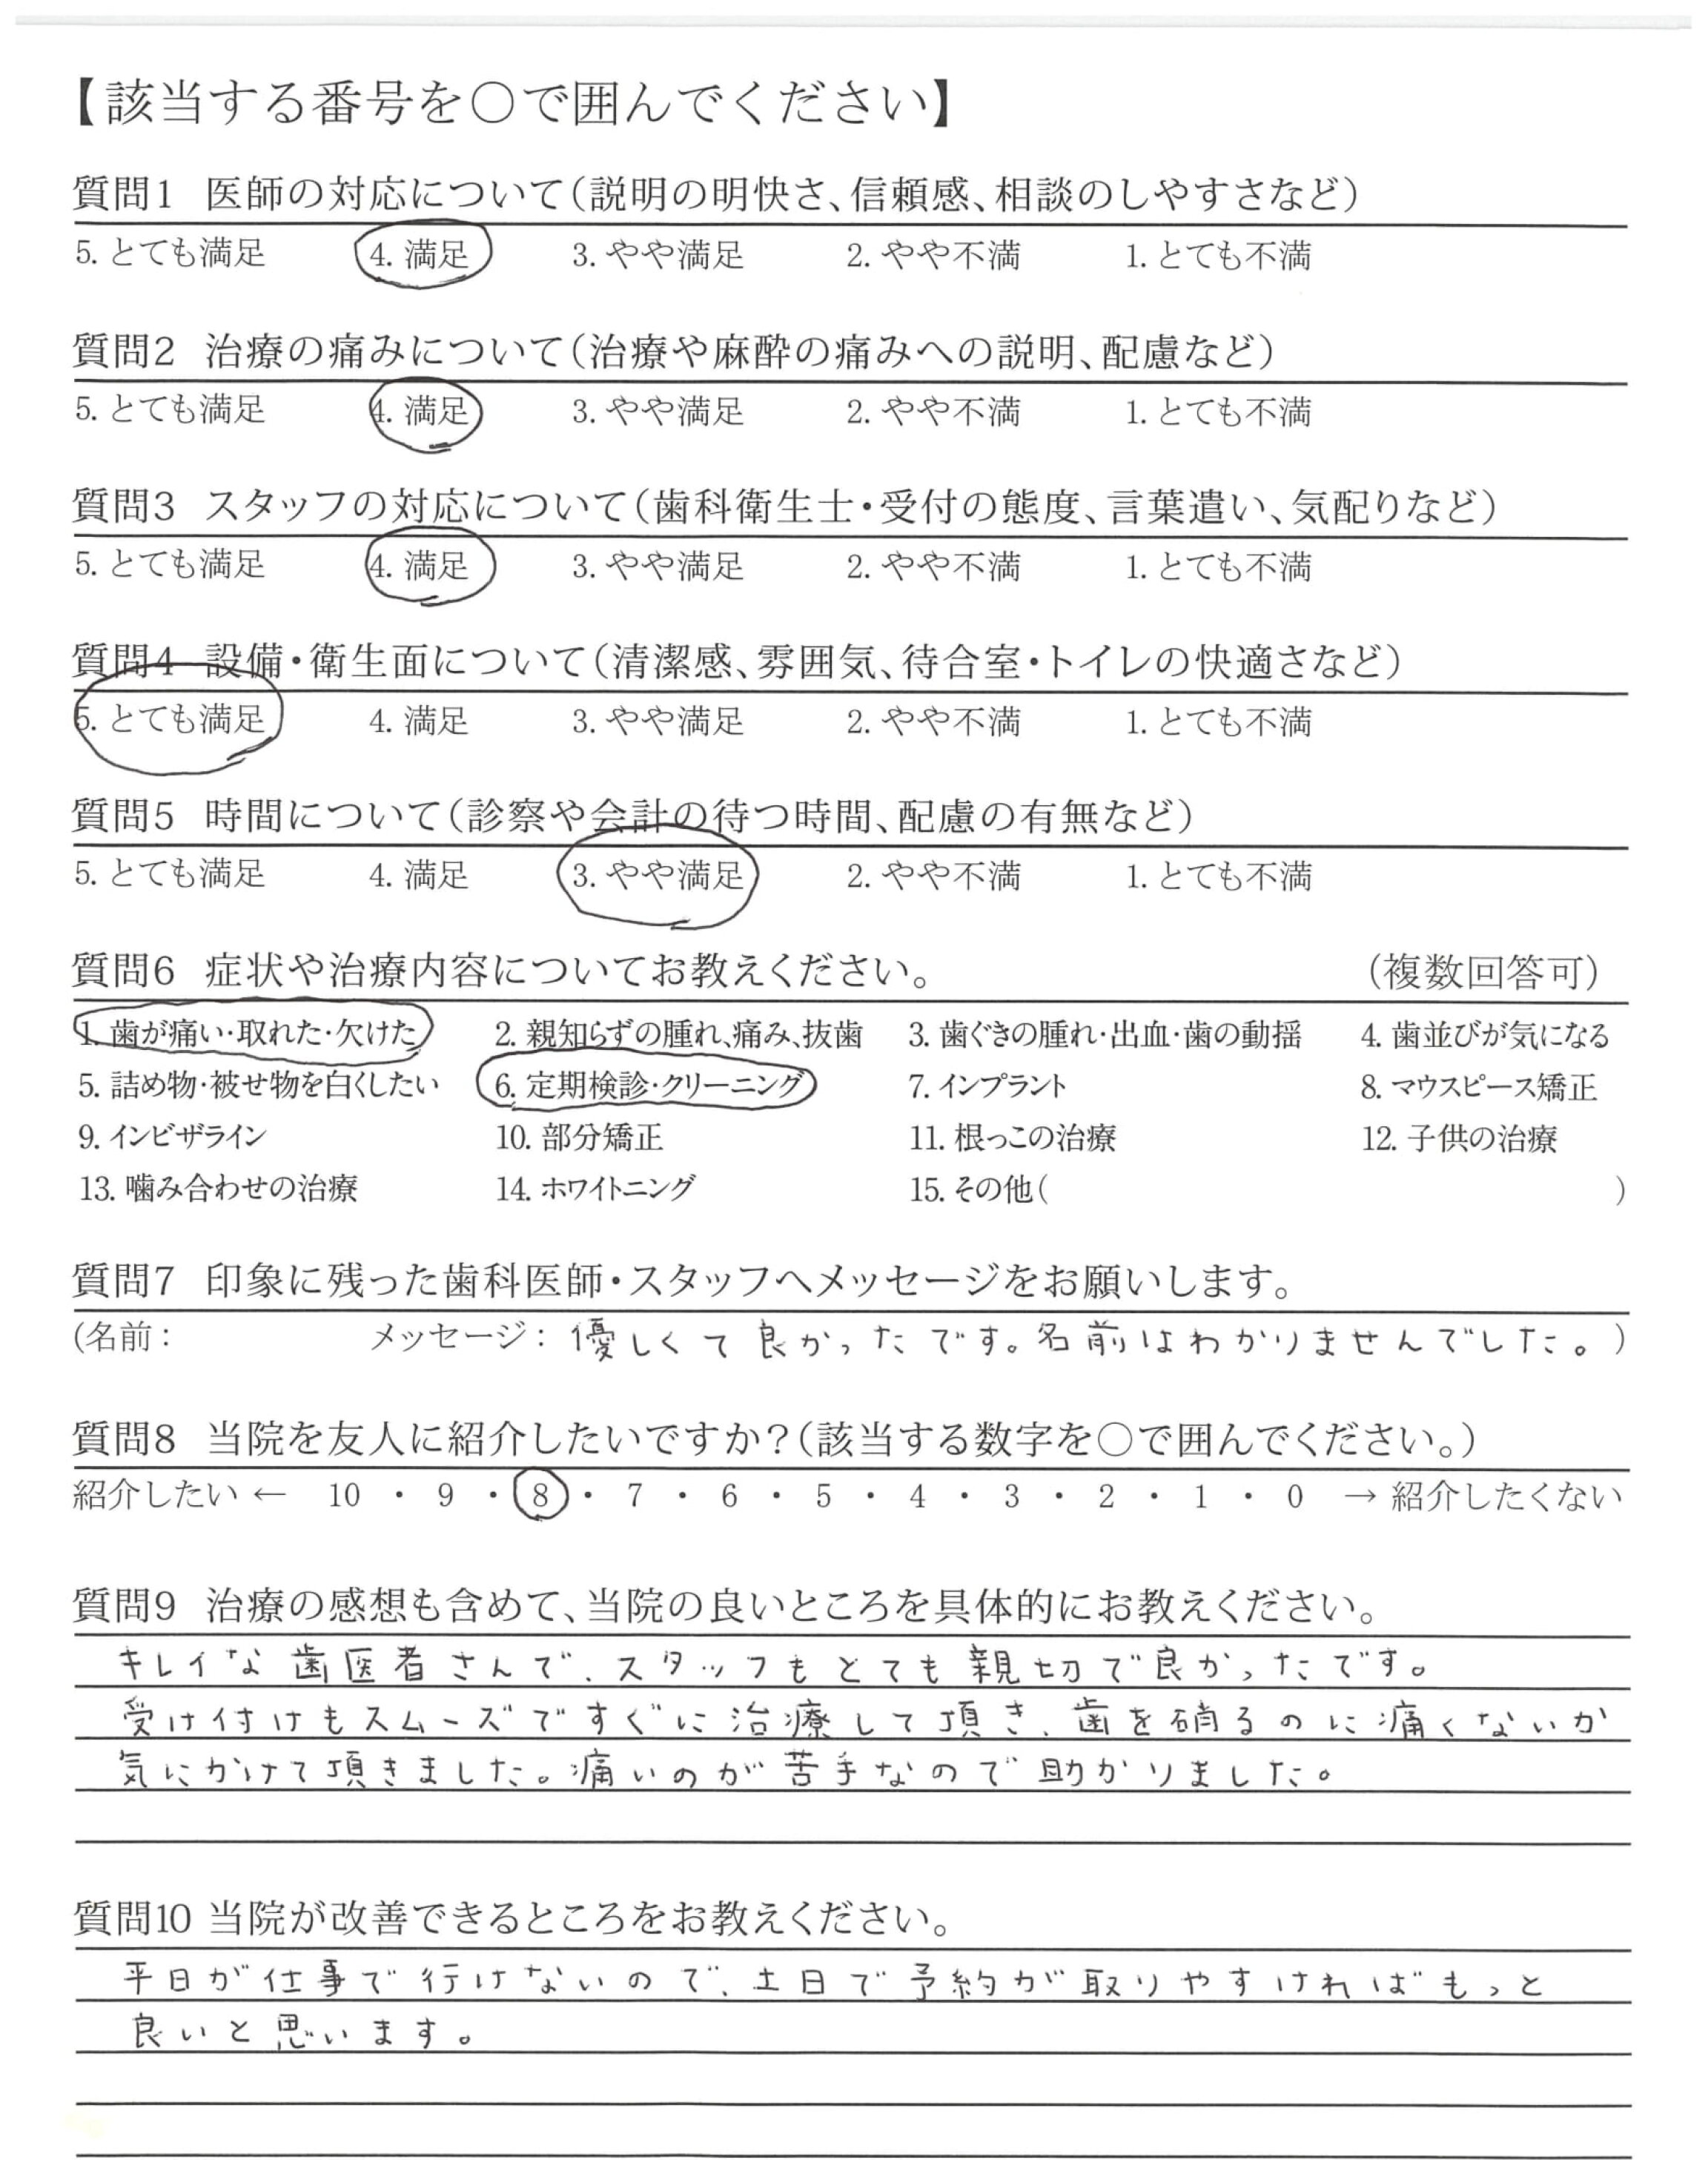 【該当する番号を〇で囲んでください】
質問1 医師の対応について(説明の明快さ、信頼感、相談のしやすさなど)
5. とても満足 4. 満足 3. やや満足 2. やや不満 1. とても不満
質問2 治療の痛みについて(治療や麻酔の痛みへの説明、配慮など)
5. とても満足 4. 満足 3. やや満足 2. やや不満 1. とても不満
質問3 スタッフの対応について(歯科衛生士・受付の態度、言葉遣い、気配りなど)
5. とても満足 4. 満足 3. やや満足 2. やや不満 1. とても不満
質問4 設備・衛生面について(清潔感、雰囲気、待合室・トイレの快適さなど)
5. とても満足 4. 満足 3. やや満足 2. やや不満 1. とても不満
質問5 時間について(診察や会計の待つ時間、配慮の有無など)
5. とても満足 4. 満足 3. やや満足 2. やや不満 1. とても不満
質問6 症状や治療内容についてお教えください。 (複数回答可)
1. 歯が痛い・取れた・欠けた 2. 親知らずの腫れ、痛み、抜歯 3. 歯ぐきの腫れ・出血・歯の動揺 4. 歯並びが気になる
5. 詰め物・被せ物を白くしたい 6. 定期検診・クリーニング 7. インプラント 8. マウスピース矯正
9. インビザライン 10. 部分矯正 11. 根っこの治療 12. 子供の治療
13. 噛み合わせの治療 14. ホワイトニング 15. その他( )
質問7 印象に残った歯科医師・スタッフへメッセージをお願いします。
(名前: メッセージ: 優しくて良かったです。名前はわかりませんでした。)
質問8 当院を友人に紹介したいですか?(該当する数字を〇で囲んでください。)
紹介したい ← 10 ・ 9 ・ 8 ・ 7 ・ 6 ・ 5 ・ 4 ・ 3 ・ 2 ・ 1 ・ 0 → 紹介したくない
質問9 治療の感想も含めて、当院の良いところを具体的にお教えください。
キレイな歯医者さんで、スタッフもとても親切で良かったです。
受け付けもスムーズですぐに治療して頂き、歯を硝るのに痛くないか
気にかけて頂きました。痛いのが苦手なので助かりました。
質問10 当院が改善できるところをお教えください。
平日が仕事で行けないので、土日で予約が取りやすければもっと
良いと思います。